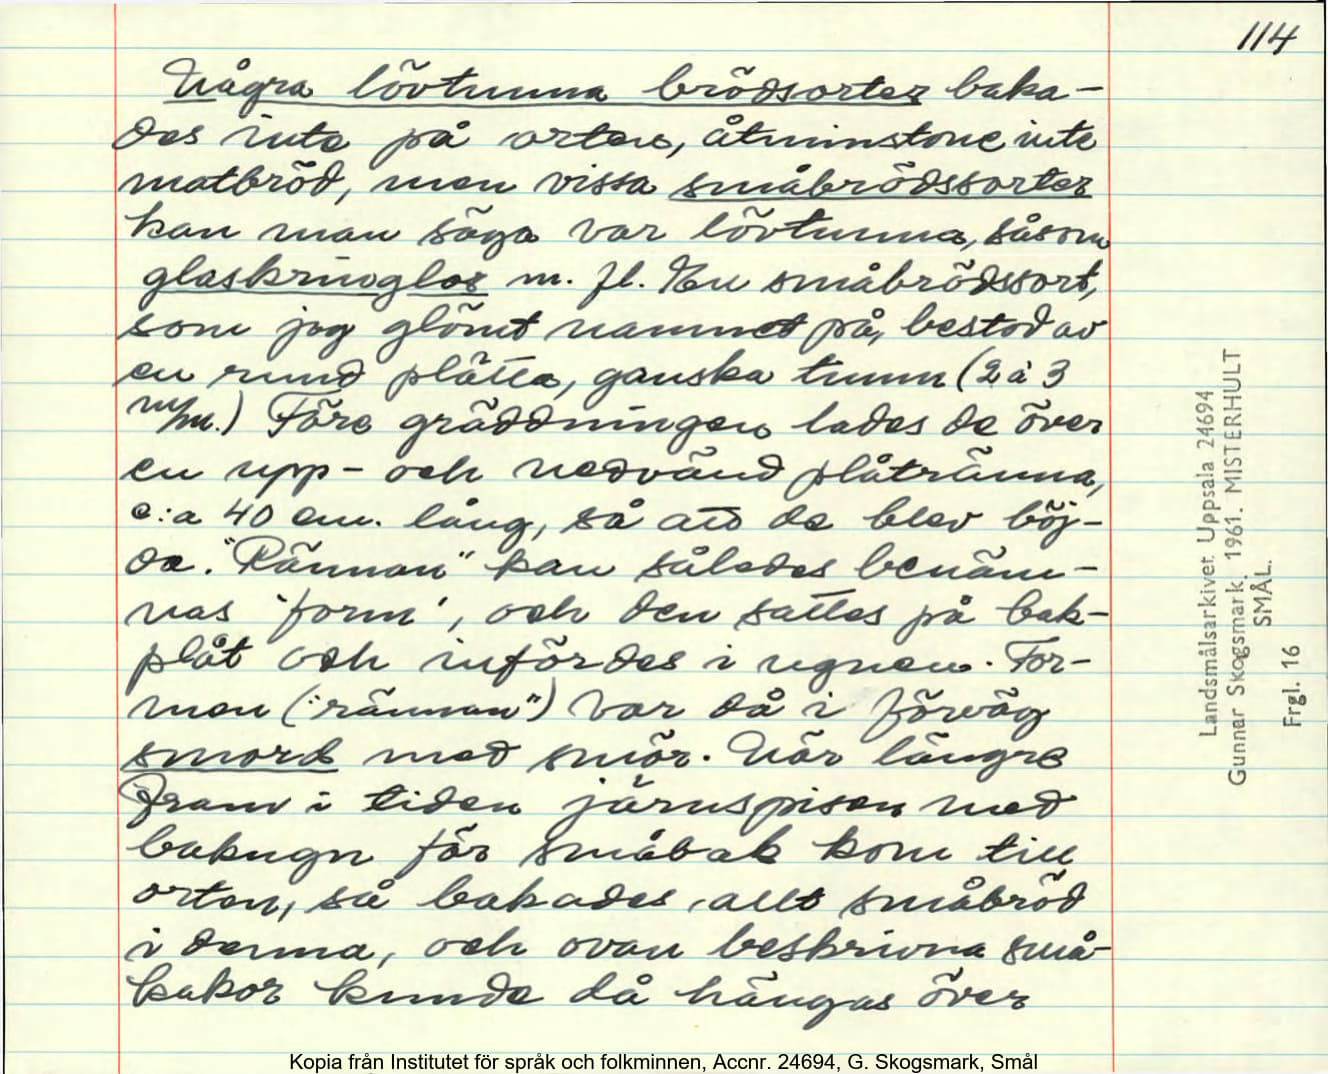 114
Några lövtunna brödsorter baka-
des inte på orten, åtminstone inte
matbröd, men vissa småbrödssorter
kan man säga var lövtunna, såsom
glaskringlor m. fl. En småbrödssort,
som jag glömt namnet på, bestod av
en rund plätta, ganska tunn (2 à 3
m/m.) Före gräddningen lades de över
en upp- och nedvänd plåtränna,
c:a 40 cm. lång, så att de blev böj-
da. "Rännan" kan således benäm-
nas 'form', och den sattes på bak-
plåt och infördes i ugnen. For-
men ("rännan") var då i förväg
smord med smör. När längre
fram i tiden järnspisen med
bakugn för småbak kom till
orten, så bakades allt småbröd
i denna, och ovan beskrivna små-
kakor kunde då hängas över
Landsmålsarkivet Uppsala 24694
Gunnar Skogsmark. 1961. MISTERHULT
SMÅL.
Frgl. 16
Kopia från Institutet för språk och folkminnen, Accnr. 24694, G. Skogsmark, Smål